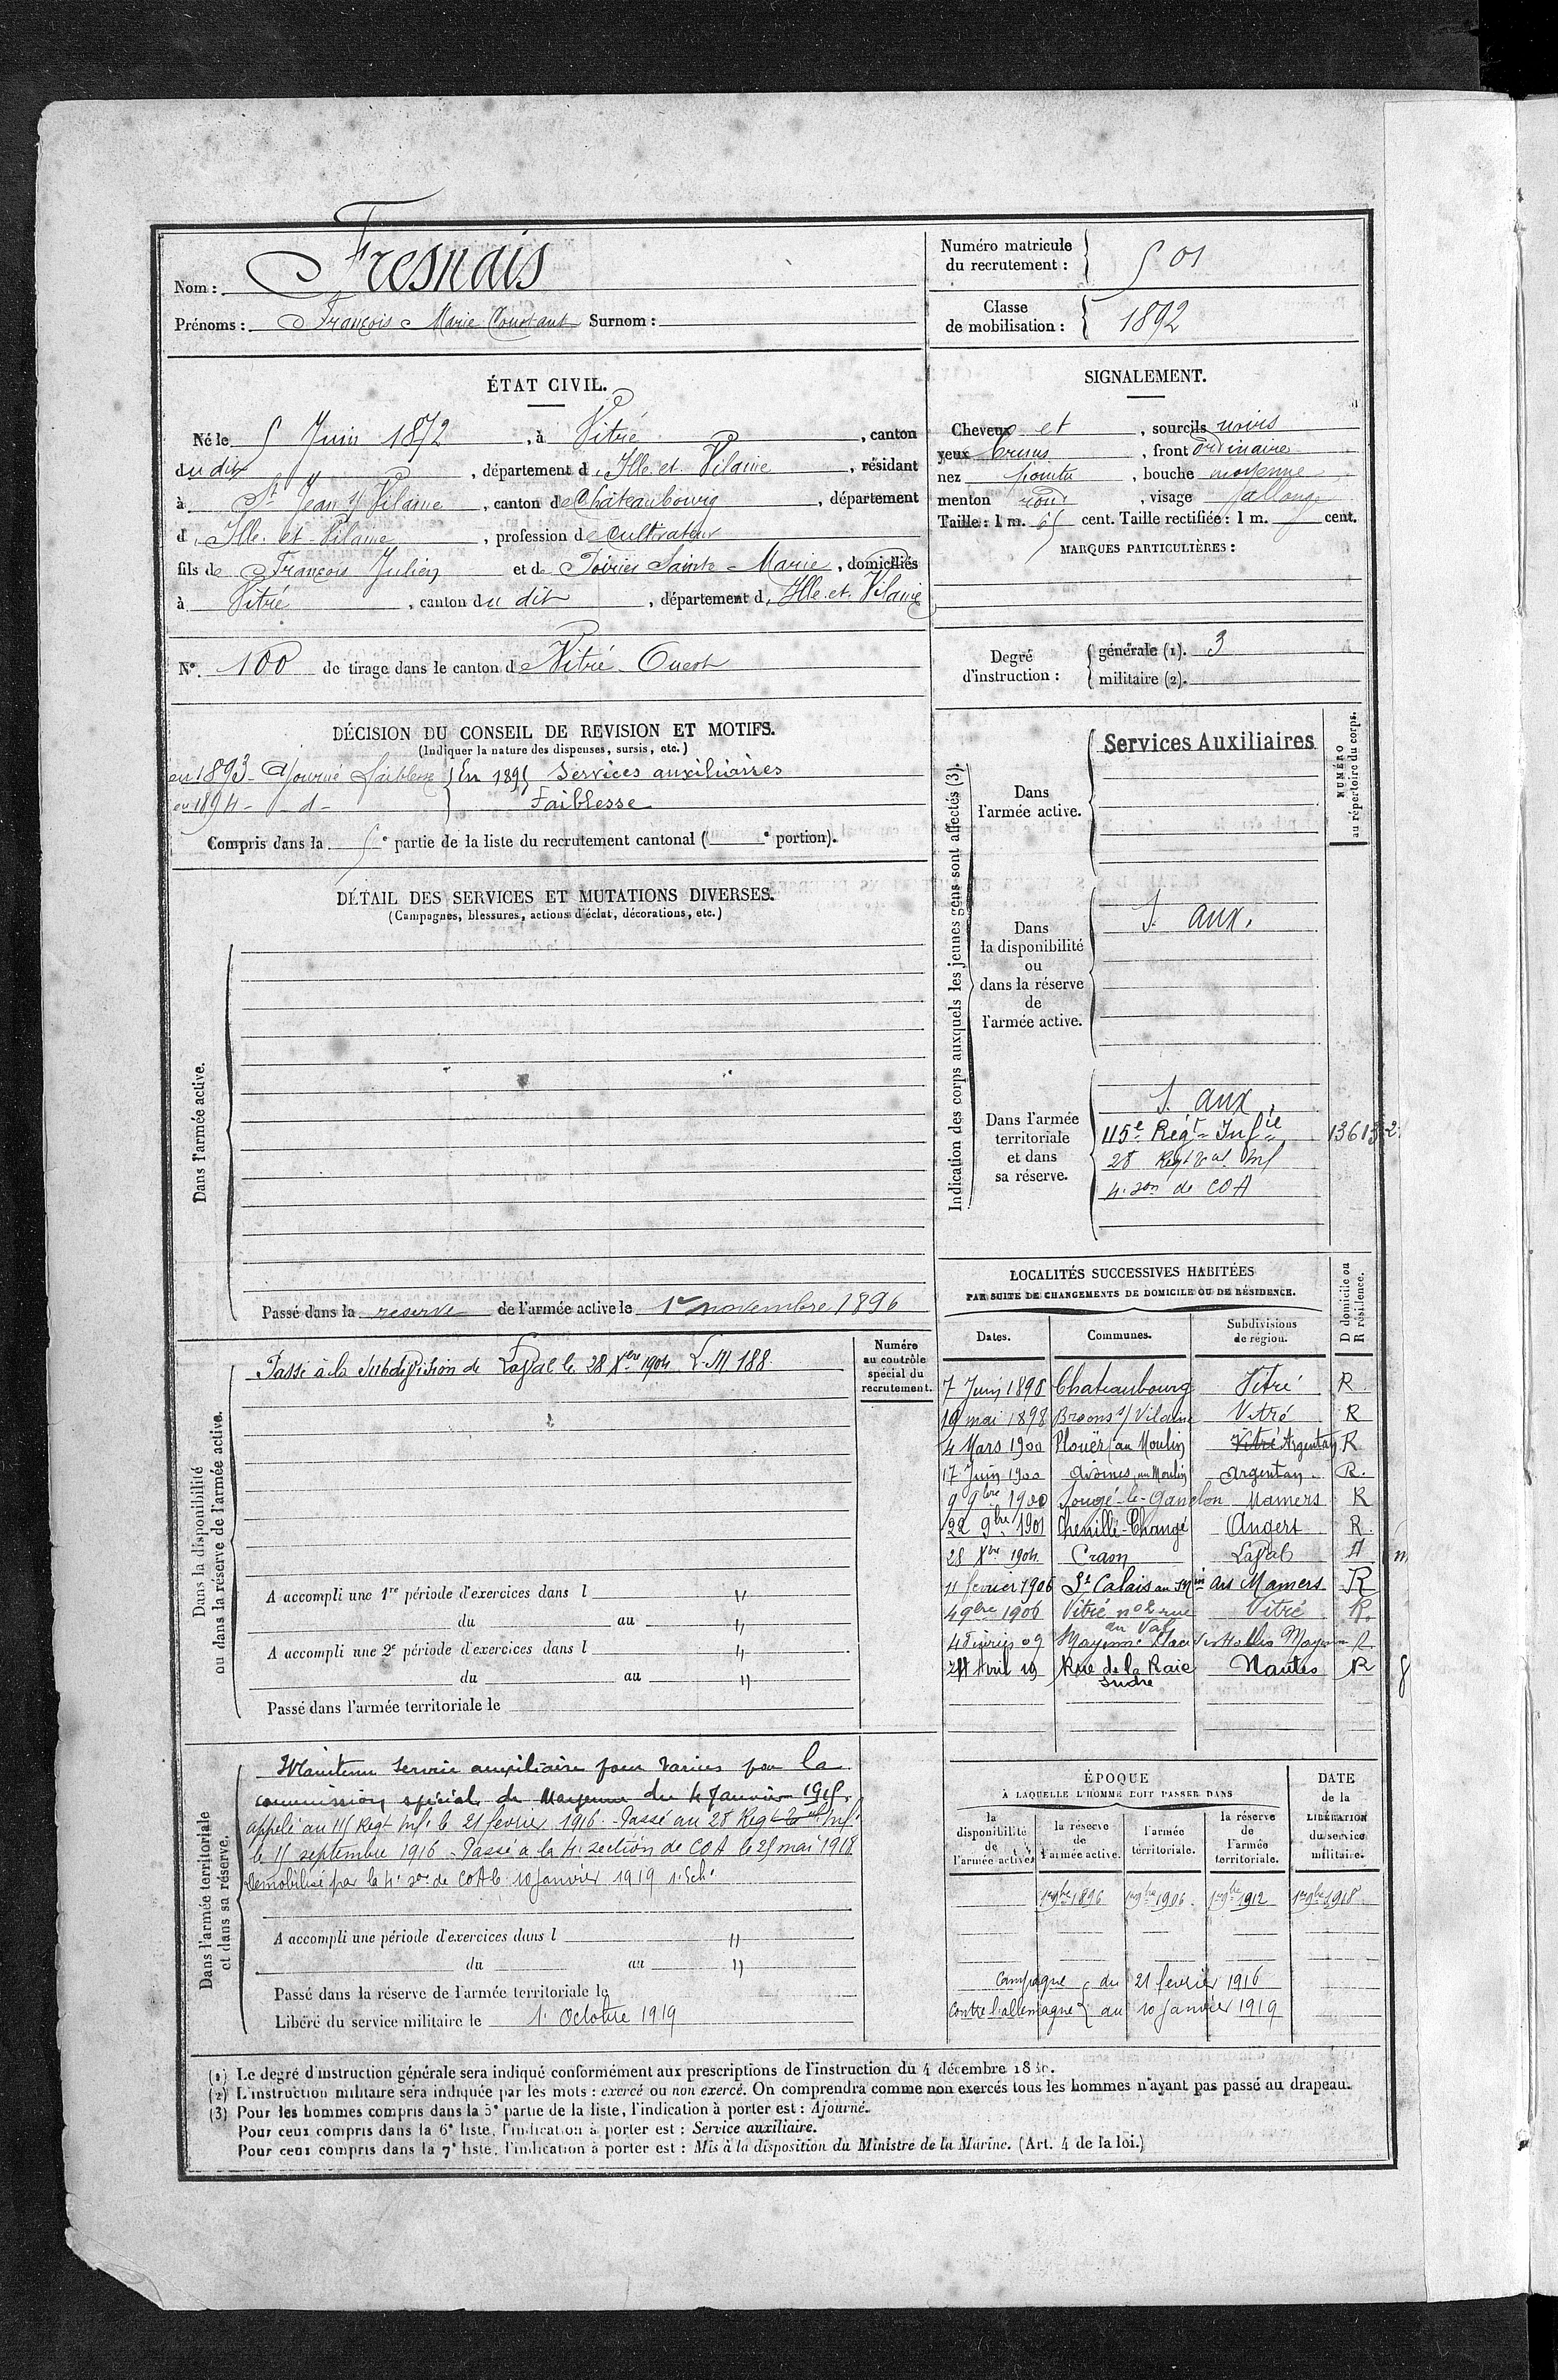 Nom : Fresnais
Prénoms : François Marie Constant Surnom :
Numéro matricule
du recrutement : 501
Classe
de mobilisation : 1892
ÉTAT CIVIL.
Né le 5 Juin 1872, à Vitré, canton
du dit, département d'Ille et Vilaine, résidant
à St Jean s/ Vilaine, canton de Chateaubourg, département
d'Ille-et-Vilaine, profession de Cultivateur
fils de François Julien et de Poirier Sainte-Marie, domiciliés
à Vitré, canton du dit, département d'Ille-et-Vilaine
N° 100 de tirage dans le canton de Vitré-Ouest
SIGNALEMENT.
Cheveux et, sourcils noirs
yeux bruns, front ordinaire
nez pointu, bouche moyenne
menton rond, visage allongé
Taille : 1 m. 65 cent. Taille rectifiée : 1 m. cent.
MARQUES PARTICULIÈRES :
Degré
d'instruction :
générale (1). 3
militaire (2).
DÉCISION DU CONSEIL DE REVISION ET MOTIFS.
(Indiquer la nature des dispenses, sursis, etc.)
en 1893 - Ajourné faiblesse } En 1895 Services auxiliaires
en 1894 - d- Faiblesse
Compris dans la 5e partie de la liste du recrutement cantonal ( e portion).
DÉTAIL DES SERVICES ET MUTATIONS DIVERSES.
(Campagnes, blessures, actions d'éclat, décorations, etc.)
Dans l'armée active.
Passé dans la reserve de l'armée active le 1er novembre 1896
Indication des corps auxquels les jeunes gens sont affectés (3).
NUMÉRO
au répertoire du corps.
Dans
l'armée active.
Services Auxiliaires
Dans
la disponibilité
ou
dans la réserve
de
l'armée active.
S. aux.
Dans l'armée
territoriale
et dans
sa réserve.
S. aux.
115e Régt Infie
28 Regt Ter Inf
4. son de COA
Dans la disponibilité
ou dans la réserve de l'armée active.
Numéro
au contrôle
spécial du
recrutement.
Passé à la Subdivision de Laval le 28 Xbre 1904 L. M 188.
A accompli une 1re période d'exercices dans l "
du au "
A accompli une 2e période d'exercices dans l "
du au "
Passé dans l'armée territoriale le
LOCALITÉS SUCCESSIVES HABITÉES
PAR SUITE DE CHANGEMENTS DE DOMICILE OU DE RÉSIDENCE.
D domicile ou
R résidence.
Dates. Communes. Subdivisions
de région.
7 Juin 1896 Chateaubourg Vitré R.
19 mai 1898 Broons s/ Vilaine Vitré R
4 Mars 1900 Plouër (au Moulin) Vitré Argentan R
17 Juin 1900 Avoines, au Moulin Argentan R.
9 9bre 1900 Sougé-le-Ganelon Mamers R
22 9bre 1901 Chenillé-Changé Angers R.
28 Xbre 1904 Craon Laval
11 février 1906 St Calais Mamers R
4 9bre 1906 Vitré n° 2 rue Vitré R.
du Val
4 Février 09 Mayenne Place des Halles R
Avril 19 Rue de la Raie Nantes R
Indre
Dans l'armée territoriale
et dans sa réserve.
Maintenu service auxiliaire pour varices par la
commission spéciale de Mayenne du 4 Janvier 1915.
appelé au 115 Regt Inf. le 21 fevrier 1916. Passé au 28 Regt Ter Inf.
le 15 septembre 1916 - Passé à la 4. section de COA le 25 mai 1918
Démobilisé par la 4. son de COA le 10 janvier 1919
A accompli une période d'exercices dans l "
du au "
Passé dans la réserve de l'armée territoriale le
Libéré du service militaire le 1. Octobre 1919
ÉPOQUE
À LAQUELLE L'HOMME DOIT PASSER DANS
la
disponibilité
de
l'armée active.
la réserve
de
l'armée active.
l'armée
territoriale.
la réserve
de
l'armée
territoriale.
DATE
de la
LIBÉRATION
du service
militaire.
1er 9bre 1896 1er 9bre 1906. 1er 9bre 1912 1er 9bre 1918
Campagne { du 21 fevrier 1916
contre l'allemagne { au 10 Janvier 1919
(1) Le degré d'instruction générale sera indiqué conformément aux prescriptions de l'instruction du 4 décembre
(2) L'instruction militaire sera indiquée par les mots : exercé ou non exercé. On comprendra comme non exercés tous les hommes n'ayant pas passé au drapeau.
(3) Pour les hommes compris dans la 5e partie de la liste, l'indication à porter est : Ajourné.
Pour ceux compris dans la 6e liste, l'indication à porter est : Service auxiliaire.
Pour ceux compris dans la 7e liste, l'indication à porter est : Mis à la disposition du Ministre de la Marine. (Art. 4 de la loi.)